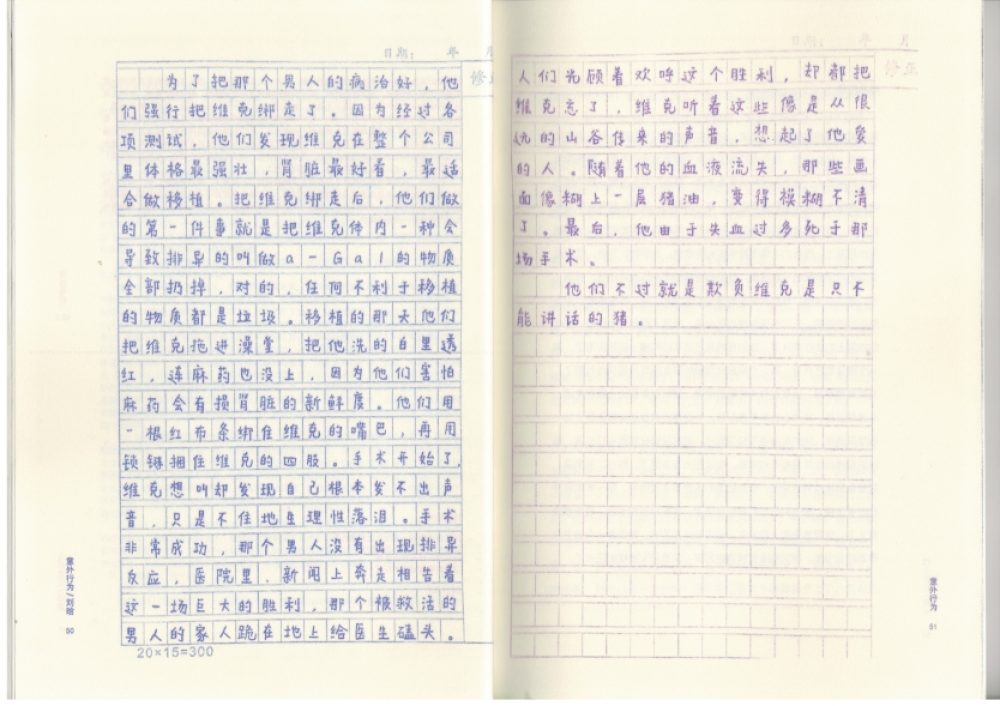 日期： 年 月
修正
为了把那个男人的病治好，他
们强行把维克绑走了。因为经过各
项测试，他们发现维克在整个公司
里体格最强壮，肾脏最好看，最适
合做移植。把维克绑走后，他们做
的第一件事就是把维克体内一种会
导致排异的叫做a-Gal的物质
全部扔掉，对的，任何不利于移植
的物质都是垃圾。移植的那天他们
把维克拖进澡堂，把他洗的白里透
红，连麻药也没上，因为他们害怕
麻药会有损肾脏的新鲜度。他们用
一根红布条绑住维克的嘴巴，再用
锁链捆住维克的四肢。手术开始了，
维克想叫却发现自己根本发不出声
音，只是不住地生理性落泪。手术
非常成功，那个男人没有出现排异
反应，医院里，新闻上奔走相告着
这一场巨大的胜利，那个被救活的
男人的家人跪在地上给医生磕头。
20×15=300
意外行为/刘晗
50
日期： 年 月
修正
人们光顾着欢呼这个胜利，却都把
维克忘了，维克听着这些像是从很
远的山谷传来的声音，想起了他爱
的人。随着他的血液流失，那些画
面像糊上一层猪油，变得模糊不清
了。最后，他由于失血过多死于那
场手术。
他们不过就是欺负维克是只不
能讲话的猪。
意外行为
51